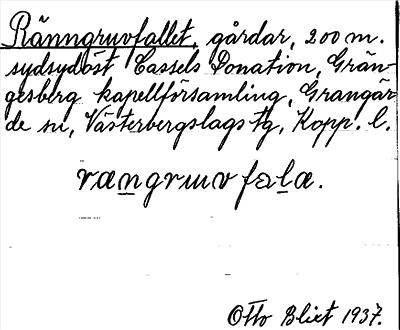 Ränngruvfallet, gårdar, 200 m.
sydsydöst Cassels Donation, Grän-
gesberg kapellförsamling, Grangär-
de sn, Västerbergslags tg, Kopp. l.
rængruvfala.
Otto Blixt 1937.